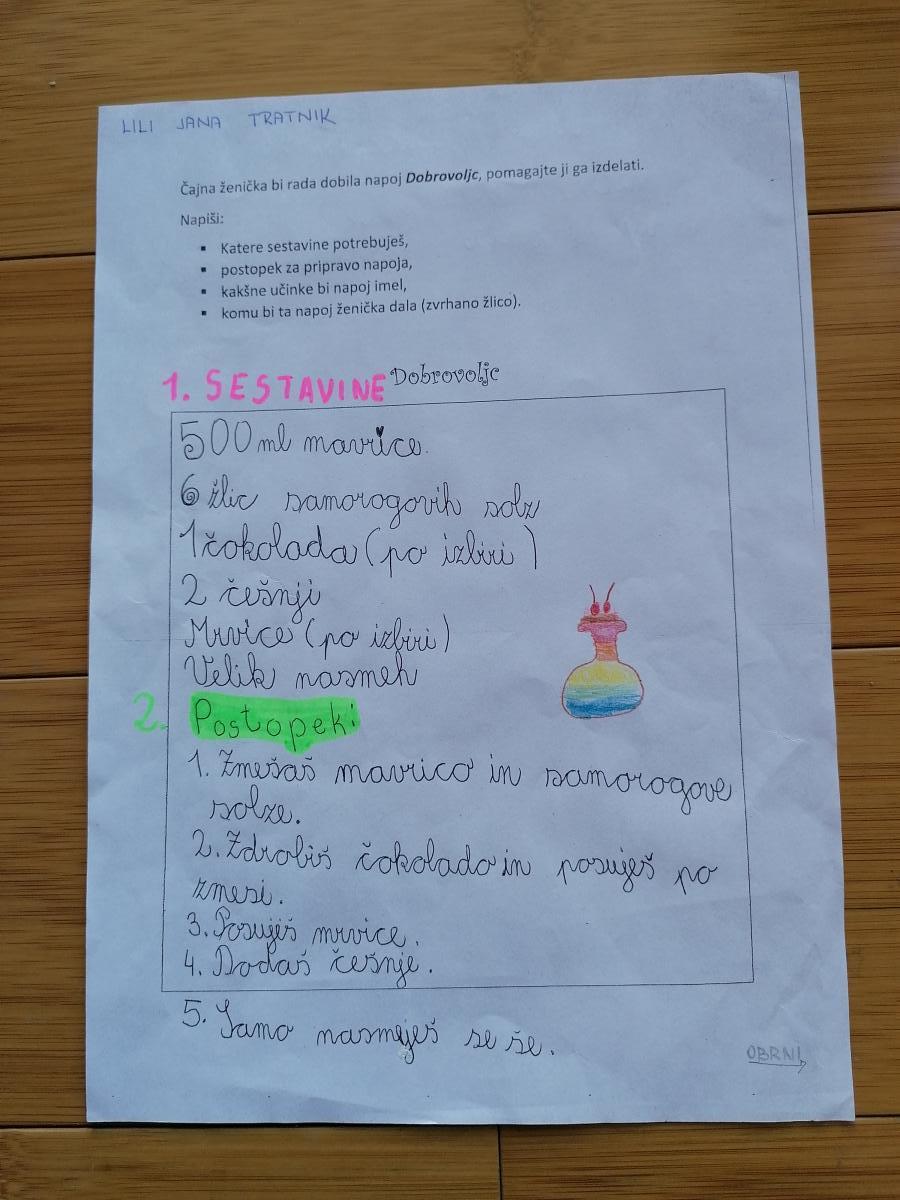 LILI JANA TRATNIK
Čajna ženička bi rada dobila napoj Dobrovoljc, pomagajte ji ga izdelati.
Napiši:
▪ Katere sestavine potrebuješ,
▪ postopek za pripravo napoja,
▪ kakšne učinke bi napoj imel,
▪ komu bi ta napoj ženička dala (zvrhano žlico).
1. SESTAVINE Dobrovoljc
500 ml mavrice.
6 žlic samorogovih solz
1 čokolada (po izbiri)
2 češnji
Mrvice (po izbiri)
Velik nasmeh
2. Postopek:
1. Zmešaš mavrico in samorogove
solze.
2. Zdrobiš čokolado in posuješ po
zmesi.
3. Posuješ mrvice.
4. Dodaš češnje.
5. Samo nasmeješ se še.
OBRNI